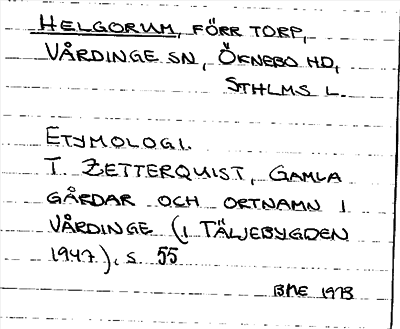 HELGORUM, FÖRR TORP,
VÅRDINGE SN, ÖKNEBO HD,
STHLMS L.
ETYMOLOGI.
T. ZETTERQUIST, GAMLA
GÅRDAR OCH ORTNAMN I
VÅRDINGE (I TÄLJEBYGDEN
1947), S. 55
BME 1973